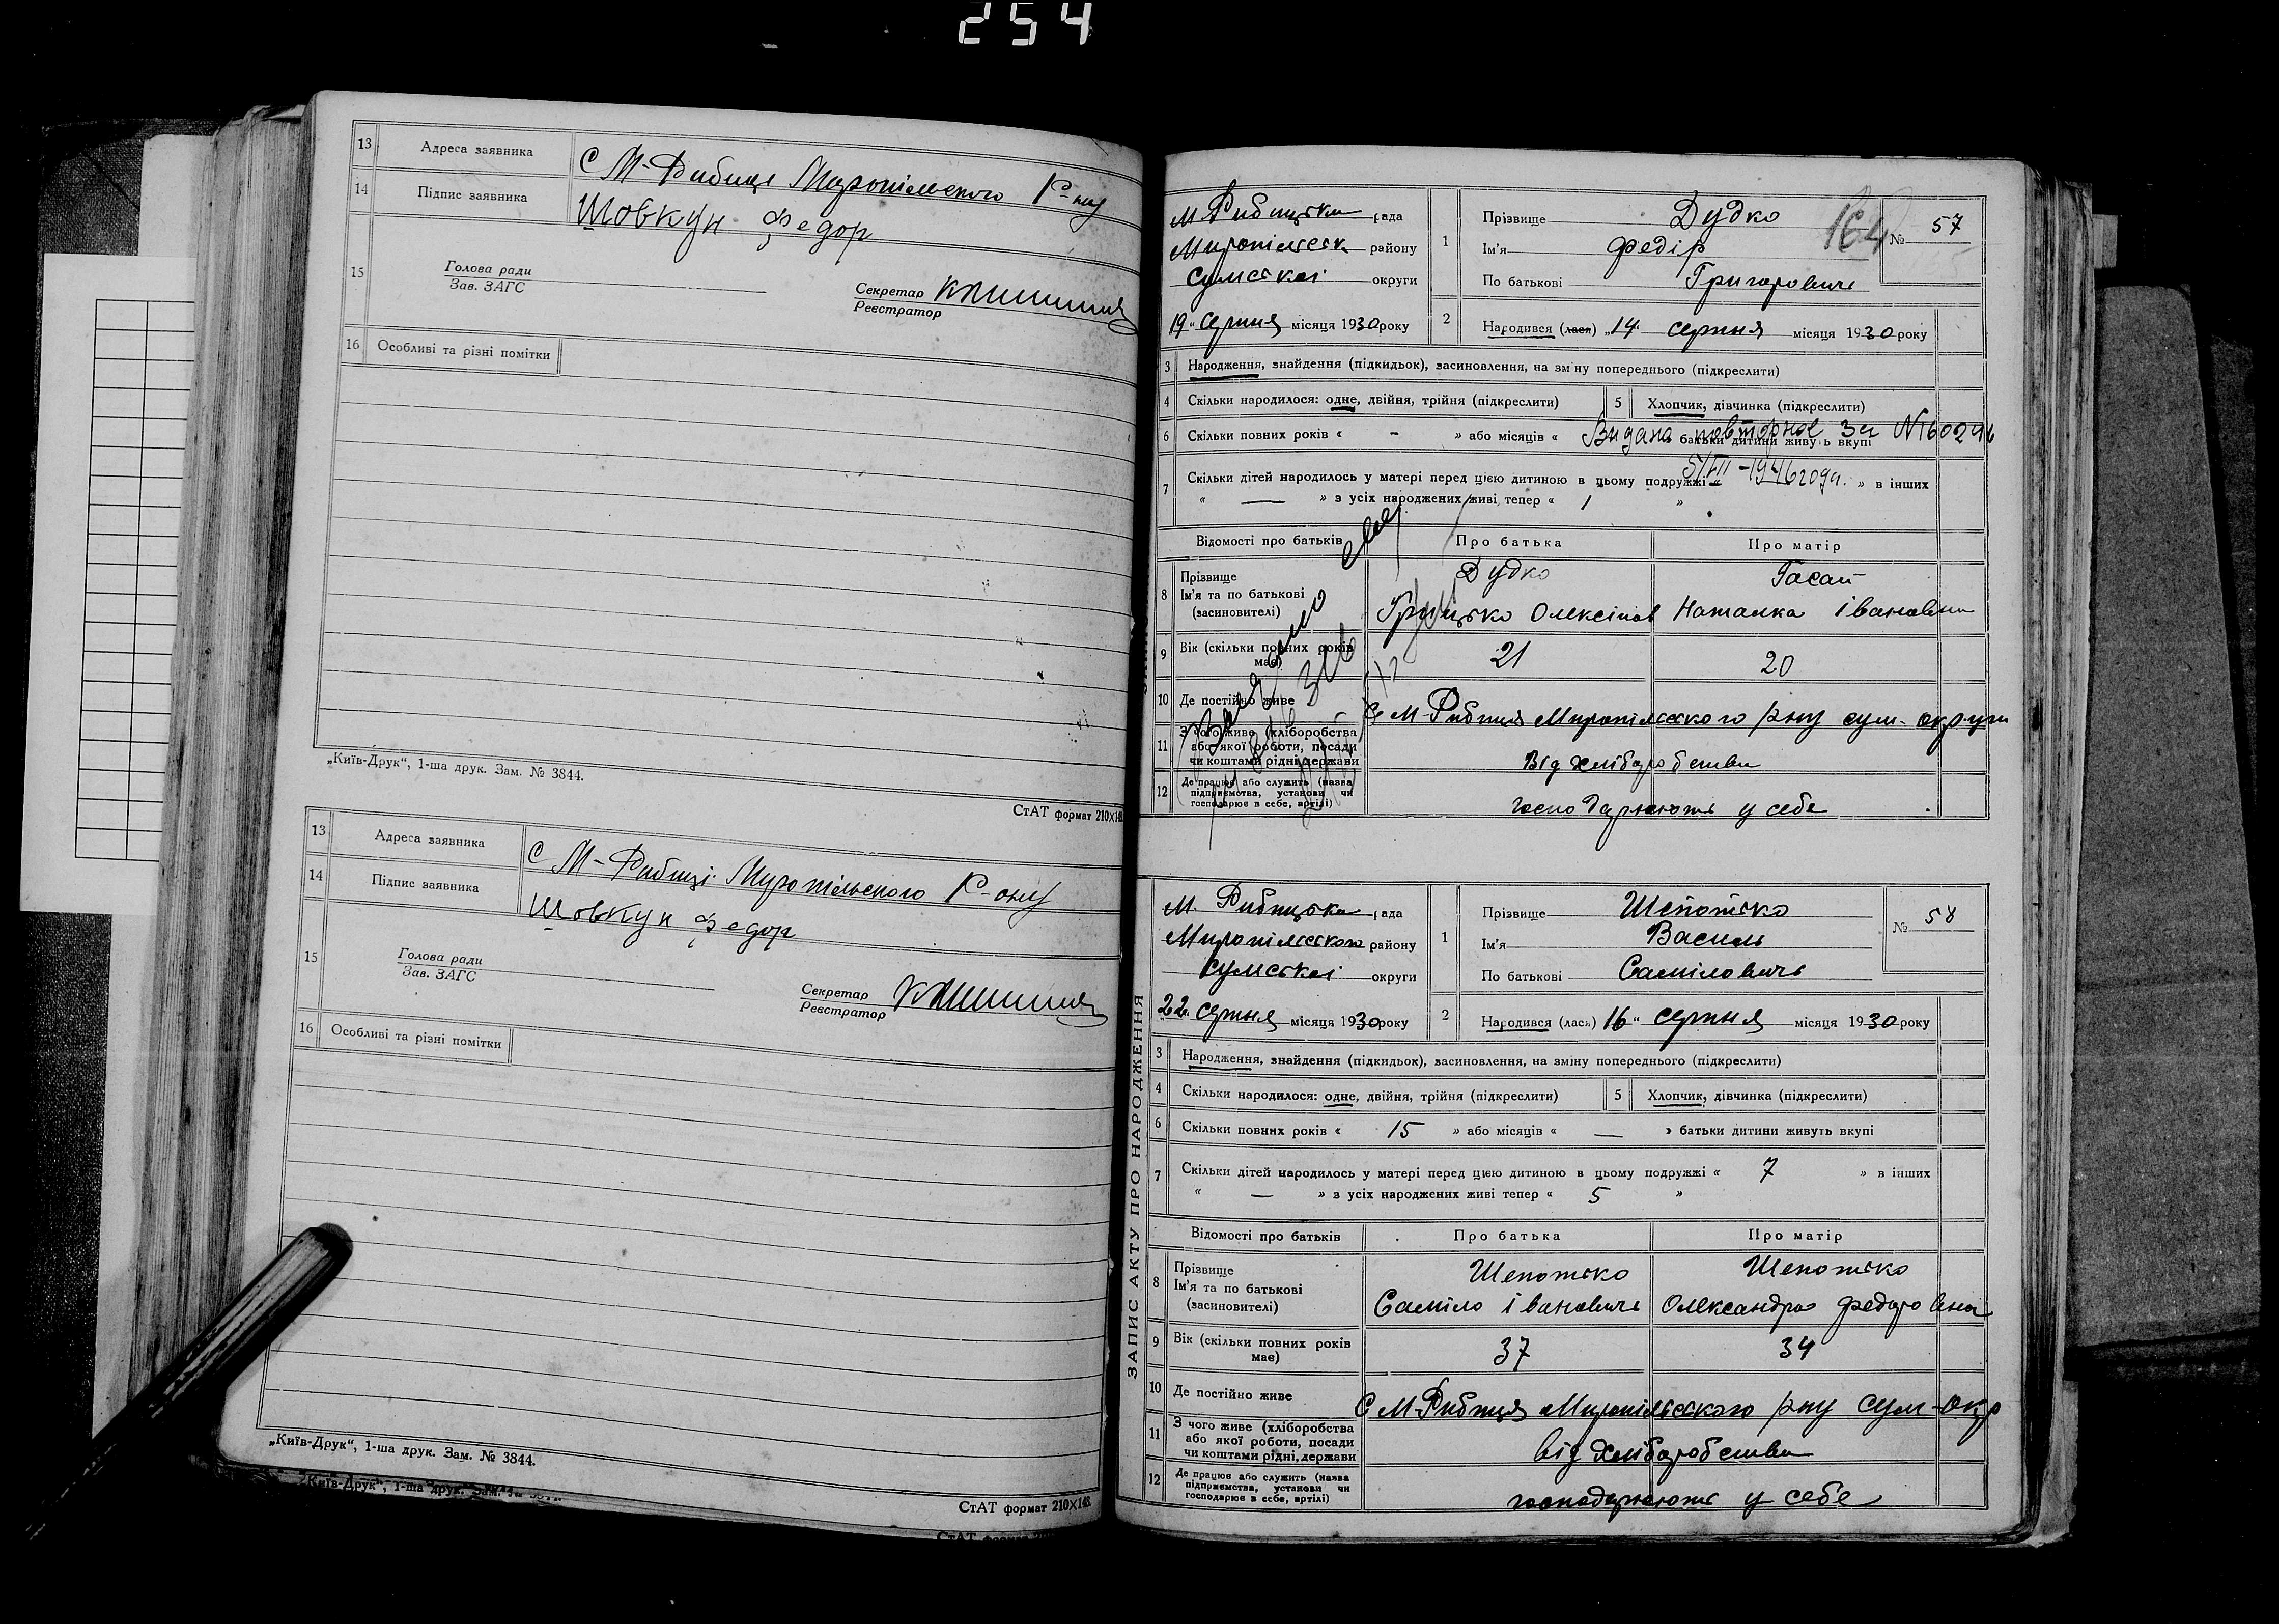 254
13 Адреса заявника С М-Рибиця Миропільского Р-ну
14 Підпис заявника Шовкун Федор
15 Голова ради
Зав. ЗАГС
Секретар
Реєстратор
16 Особливі та різні помітки
„Київ-Друк“, 1-ша друк. Зам. № 3844.
СтАТ формат 210×148
13 Адреса заявника С М-Рибиці Миропільского Р-ону
14 Підпис заявника Шовкун Федор
15 Голова ради
Зав. ЗАГС
Секретар
Реєстратор
16 Особливі та різні помітки
„Київ-Друк“, 1-ша друк. Зам. № 3844.
СтАТ формат 210×148
„Київ-Друк“, 1-ша друк. Зам.
СтАТ
164
М. Рибицька рада
Миропільськ району
Сумської округи
19 серпня місяця 1930 року
1 Прізвище Дудко
№ 57
Ім'я Федір
По батькові Григорович
2 Народився (лася) „14 серпня місяця 1930 року
3 Народження, знайдення (підкидьок), засиновлення, на зміну попереднього (підкреслити)
4 Скільки народилося: одне, двійня, трійня (підкреслити) 5 Хлопчик, дівчинка (підкреслити)
6 Скільки повних років « - » або місяців « батьки дитини живуть вкупі
Видано повторное за №
7 Скільки дітей народилось у матері перед цією дитиною в цьому подружжі « » в інших
« — » з усіх народжених живі тепер « 1 »
Відомості про батьків Про батька Про матір
8 Прізвище Дудко
Ім'я та по батькові (засиновителі) Грицько Наталка Івановна
9 Вік (скільки повних років має) 21 20
10 Де постійно живе С М-Рибиця Миропільского р-ну сум- округи
11 З чого живе (хліборобства або якої роботи, посади чи коштами рідні, держави Від хліборобства
12 Де працює або служить (назва підприємства, установи чи господарює в себе, артілі) господарюють у себе
ЗАПИС АКТУ ПРО НАРОДЖЕННЯ
М. Рибицька рада
Миропільского району
Сумської округи
22 серпня місяця 1930 року
1 Прізвище Шепотько
№ 58
Ім'я Василь
По батькові Самілович
2 Народився (лася) 16 „ серпня місяця 1930 року
3 Народження, знайдення (підкидьок), засиновлення, на зміну попереднього (підкреслити)
4 Скільки народилося: одне, двійня, трійня (підкреслити) 5 Хлопчик, дівчинка (підкреслити)
6 Скільки повних років « 15 » або місяців « — » батьки дитини живуть вкупі
7 Скільки дітей народилось у матері перед цією дитиною в цьому подружжі « 7 » в інших
« — » з усіх народжених живі тепер « 5 »
Відомості про батьків Про батька Про матір
8 Прізвище Шепотько Шепотько
Ім'я та по батькові (засиновителі) Саміло Іванович Олександра Федоровна
9 Вік (скільки повних років має) 37 34
10 Де постійно живе С М-Рибиця Миропільского р-ну Сум-окр
11 З чого живе (хліборобства або якої роботи, посади чи коштами рідні, держави від хліборобства
12 Де працює або служить (назва підприємства, установи чи господарює в себе, артілі) господарюють у себе